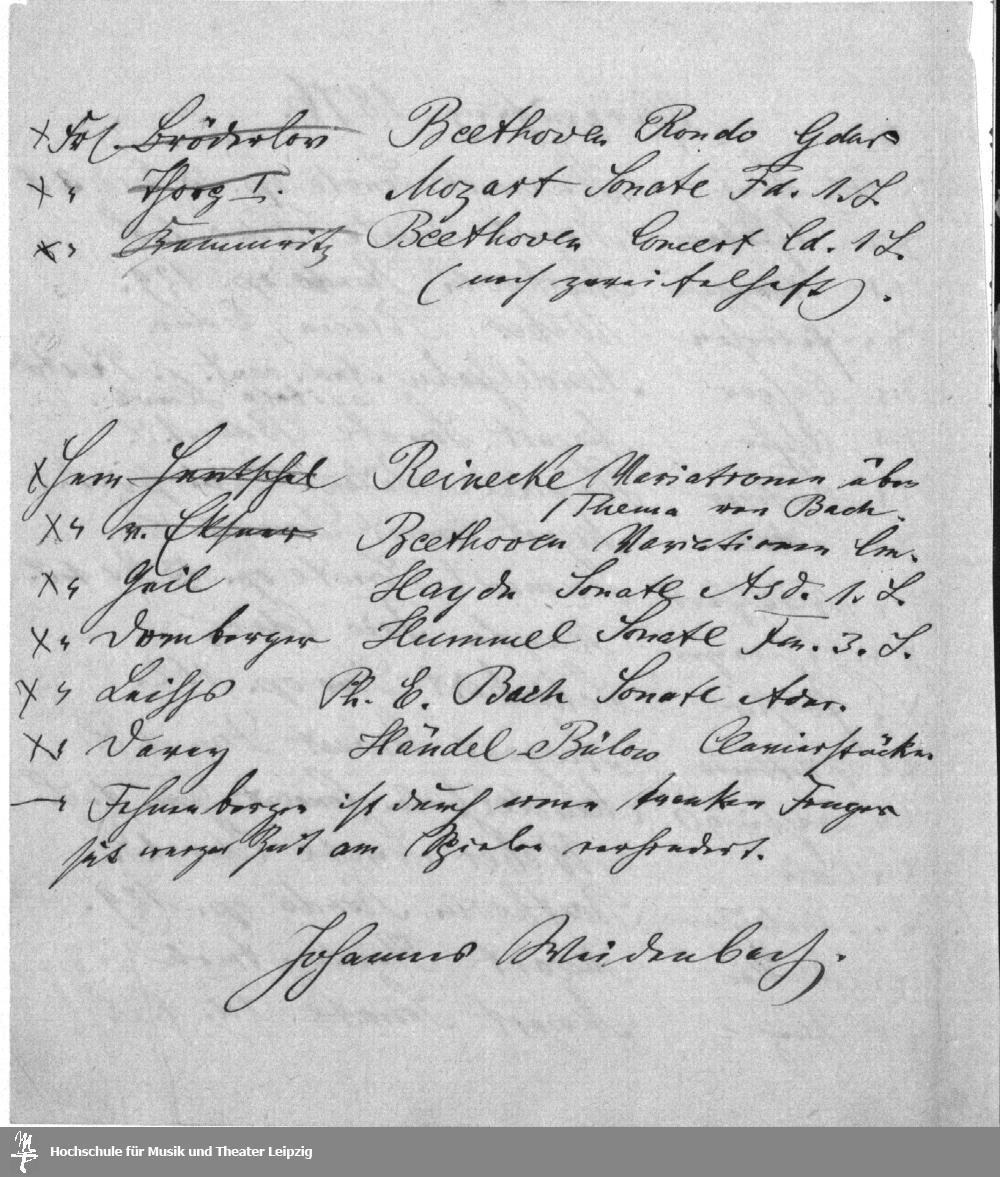 × Frl. Bröderlov Beethoven Rondo Gdur
× " Thorz I. Mozart Sonate Fd. 1. S.
× " Kummritz Beethoven Concert Cd. 1 S.
(noch zweifelhaft).
× Herr Hentschel Reinecke Variationen über
Thema von Bach.
× " v. Eksner Beethoven Variationen Cm.
× " Geil Haydn Sonate Asd. 1. S.
× " Dornberger Hummel Sonate Fm. 3. S.
× " Ph. E. Bach Sonate Adur.
× " Davey Händel-Bülow Clavierstücke
— " ist durch einen kranken Finger
seit einiger Zeit am Spielen verhindert.
Johannes Weidenbach.
Hochschule für Musik und Theater Leipzig